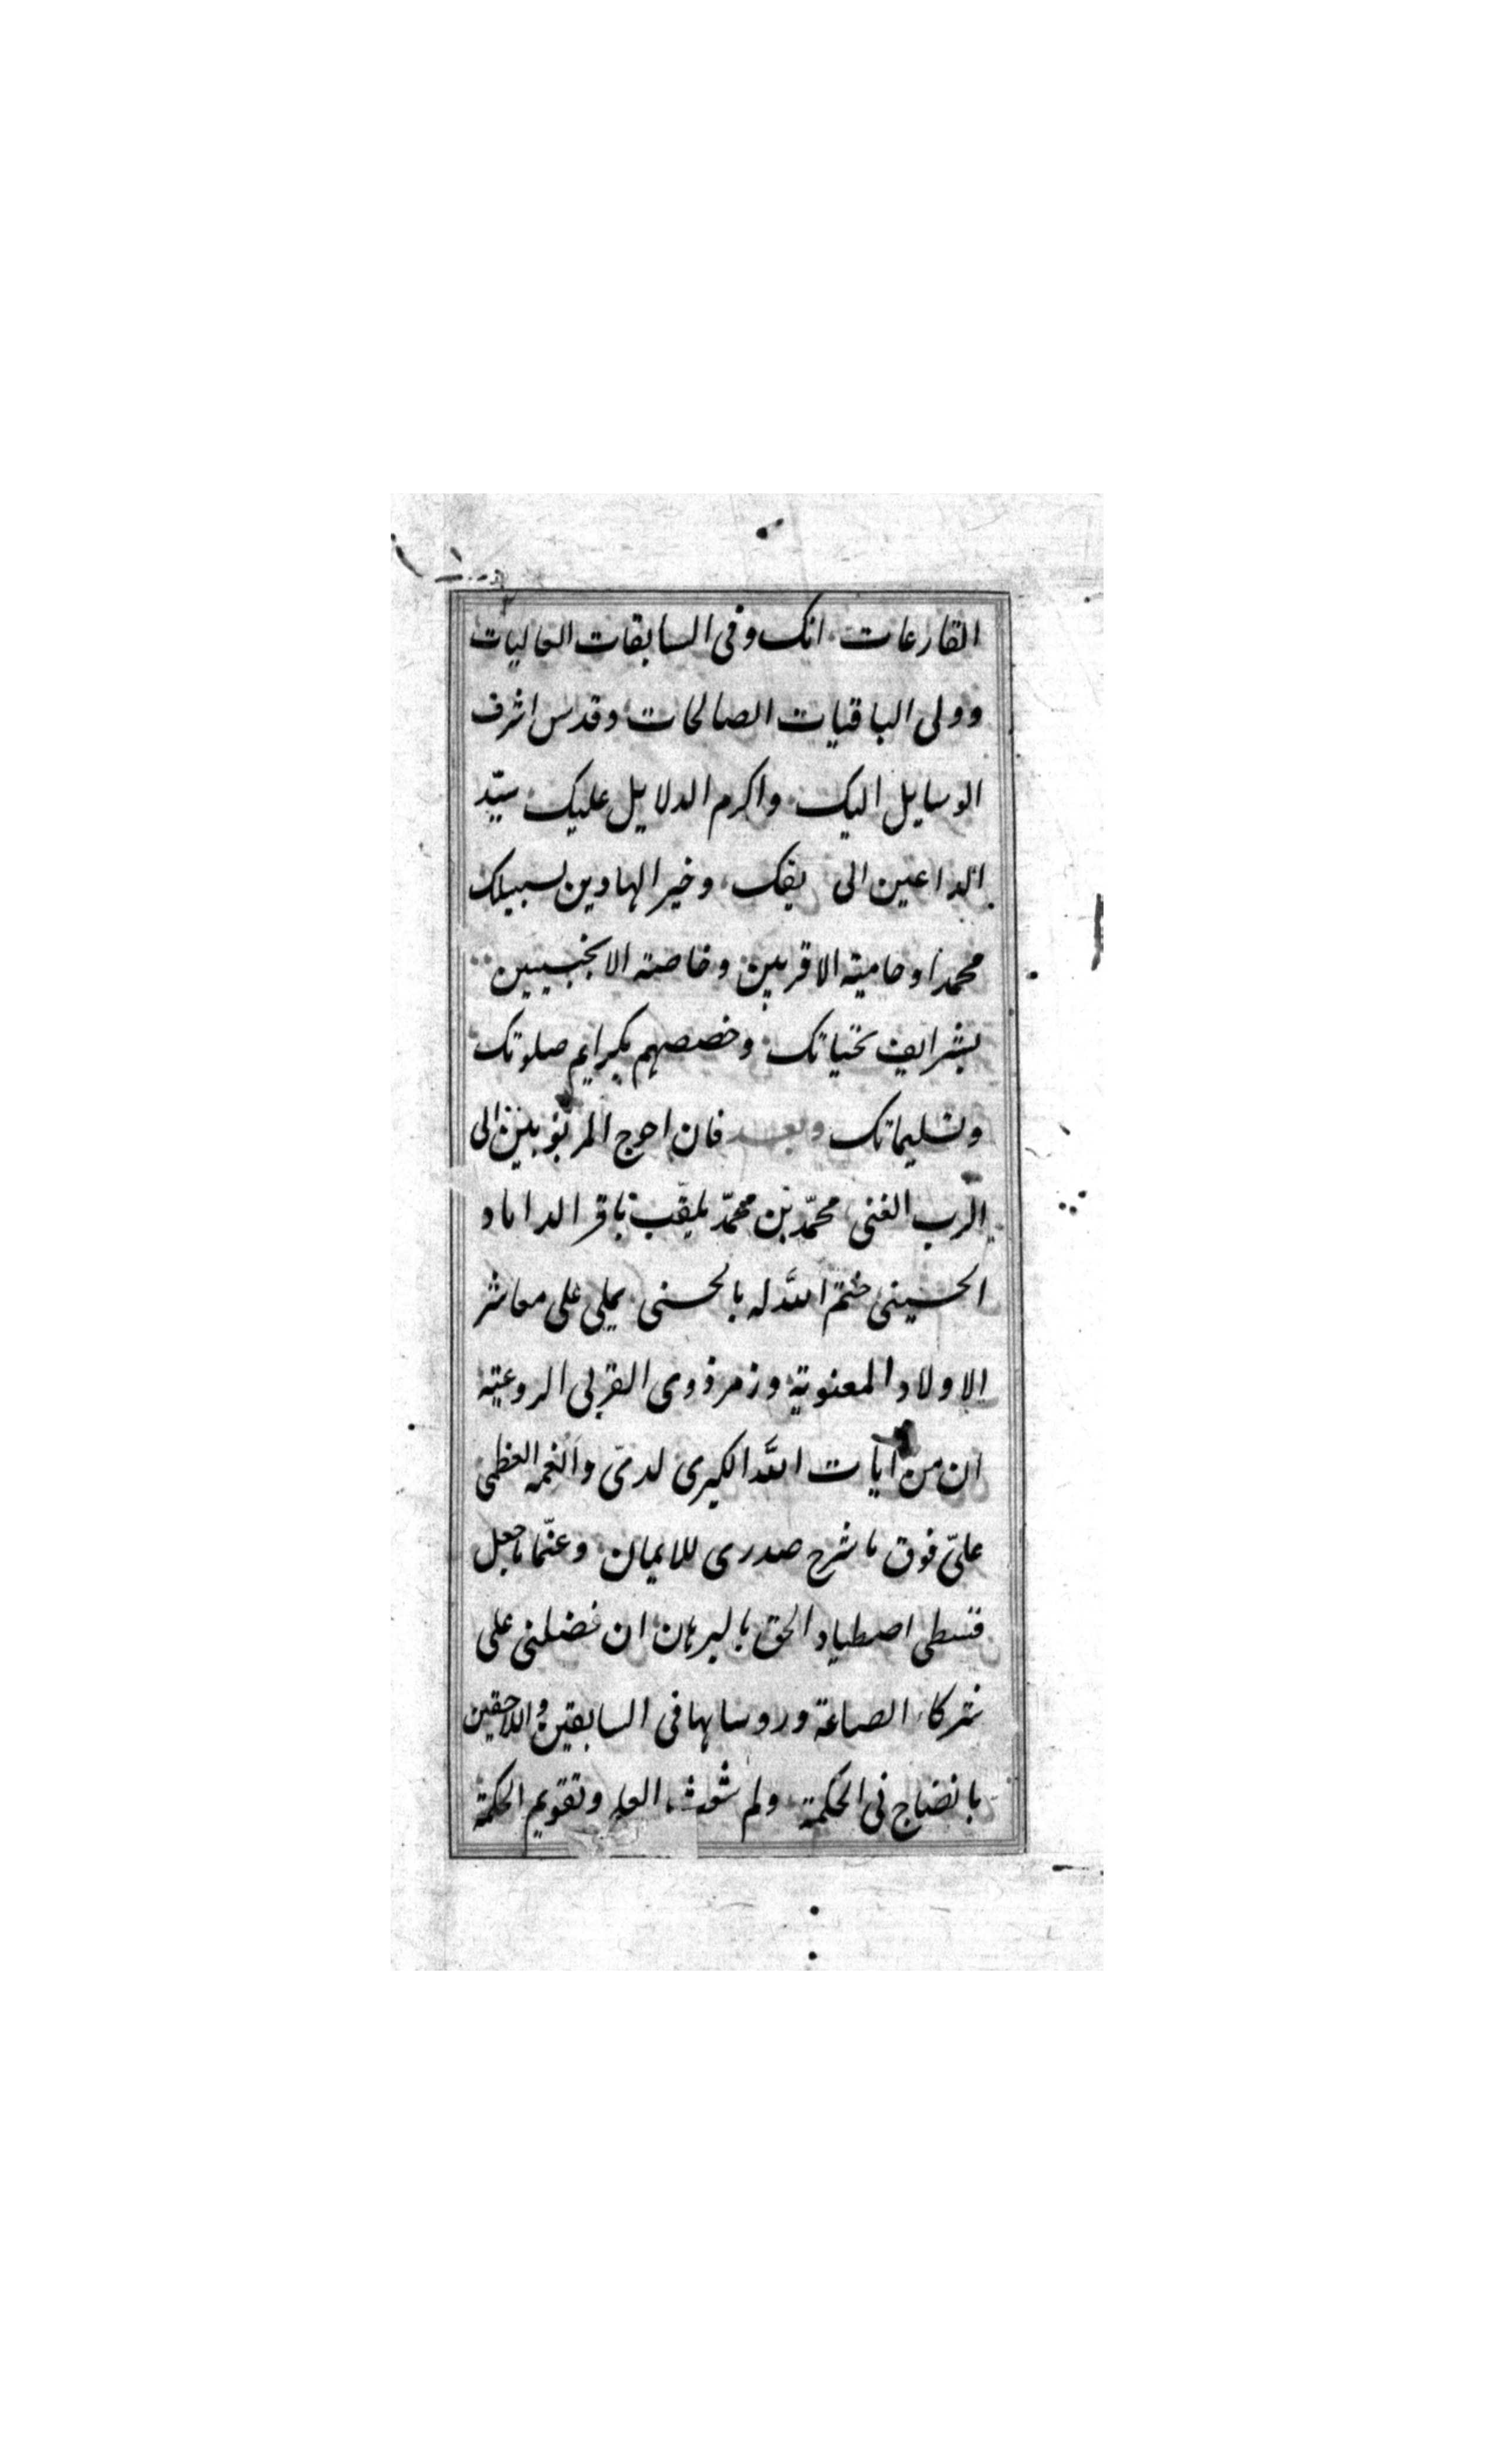 القارعات انك وفی السابقات العالیات
وولی الباقیات الصالحات وقدس اشرف
الوسایل الیک واکرم الدلایل علیک سیّد
الداعین الی وخیر الهادین لسبیلک
محمدا وحامیته الاقربین وخاصته الانجبیین
بشرایف تحیاتک وخصصهم بکرایم صلوتک
وتسلیماتک وبعد فان احوج المربوبین الی
الرب الغنی محمّد بن محمّد یلقّب باقر الداماد
الحسینی ختم الله له بالحسنی یملی علی معاشر
الاولاد المعنویة وزمر ذوی القربی الروعیة
ان من آیات الله الکبری لدیّ والنعمه العظمی
علیّ فوق ما شرح صدری للایمان وعمّا جعل
قسطی اصطیاد الحق بالبرهان ان فضلنی علی
شرکاء الصناعة وروسایها فی السابقین واللاحقین
بانضاج فی الحکمة ولم شعث العلم وتقویم الحکمة